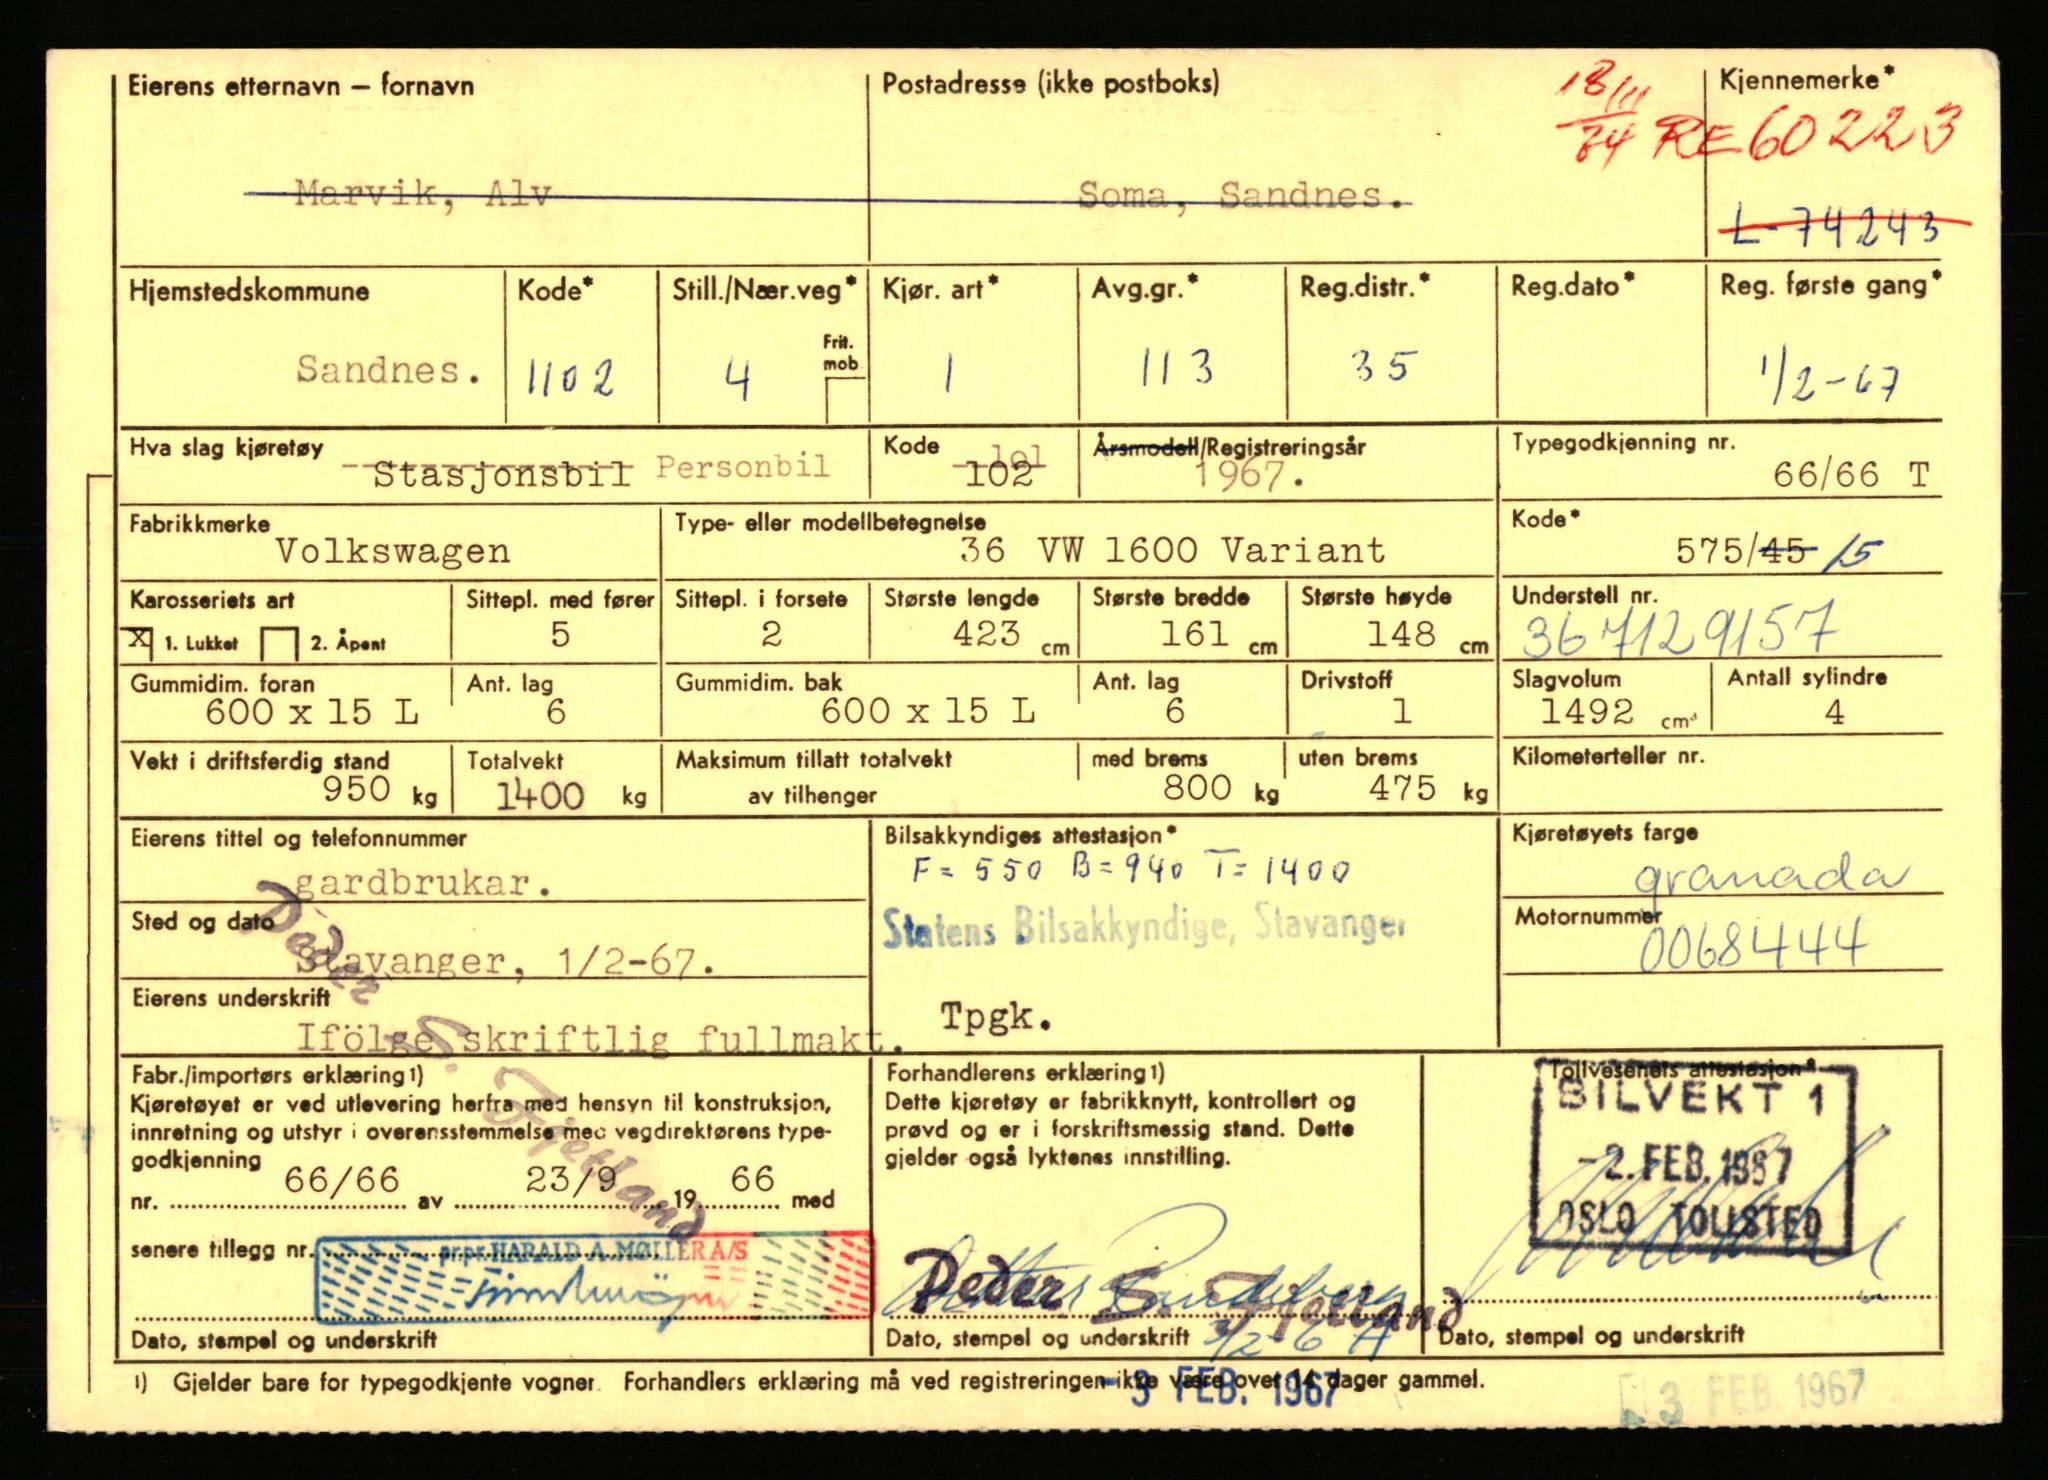 Eierens etternavn – fornavn
Postadresse (ikke postboks)
18/11
Kjennemerke*
RE60223
Marvik, Alv
Soma, Sandnes.
L-74243
Hjemstedskommune
Kode*
Still./Nær.veg*
Kjør. art*
Avg.gr.*
Reg.distr.*
Reg.dato*
Reg. første gang*
Frit. mob
Sandnes.
1102
4
1
113
35
1/2-67
Hva slag kjøretøy
Kode
Årsmodell/Registreringsår
Typegodkjenning nr.
Stasjonsbil Personbil
101
102
1967.
66/66 T
Fabrikkmerke
Type- eller modellbetegnelse
Kode*
Volkswagen
36 VW 1600 Variant
575/45 15
Karosseriets art
Sittepl. med fører
Sittepl. i forsete
Største lengde
Største bredde
Største høyde
Understell nr.
X 1. Lukket 2. Åpent
5
2
423 cm
161 cm
148 cm
367129157
Gummidim. foran
Ant. lag
Gummidim. bak
Ant. lag
Drivstoff
Slagvolum
Antall sylindre
600 x 15 L
6
600 x 15 L
6
1
1492 cm³
4
Vekt i driftsferdig stand
Totalvekt
Maksimum tillatt totalvekt
med brems
uten brems
Kilometerteller nr.
950 kg
1400 kg
av tilhenger
800 kg
475 kg
Eierens tittel og telefonnummer
Bilsakkyndiges attestasjon*
Kjøretøyets farge
gardbrukar.
F= 550 B= 940 T= 1400
granada
Sted og dato
Statens Bilsakkyndige, Stavanger
Motornummer
Stavanger, 1/2-67.
0068444
Eierens underskrift
Ifölge skriftlig fullmakt.
Tpgk.
Peder S. Fjetland
Fabr./importørs erklæring1)
Kjøretøyet er ved utlevering herfra med hensyn til konstruksjon,
innretning og utstyr i overensstemmelse med vegdirektørens type-
godkjenning
nr. 66/66 av 23/9 1966 med
senere tillegg nr.
pr.pr. HARALD A. MØLLER A/S
Dato, stempel og underskrift
Forhandlerens erklæring1)
Dette kjøretøy er fabrikknytt, kontrollert og
prøvd og er i forskriftsmessig stand. Dette
gjelder også lyktenes innstilling.
Peder S. Fjetland
Dato, stempel og underskrift
Tollvesenets attestasjon*
BILVEKT 1
-2. FEB. 1967
OSLO TOLLSTED
Dato, stempel og underskrift
1) Gjelder bare for typegodkjente vogner. Forhandlers erklæring må ved registreringen ikke være over 14 dager gammel.
-3 FEB. 1967
3 FEB. 1967